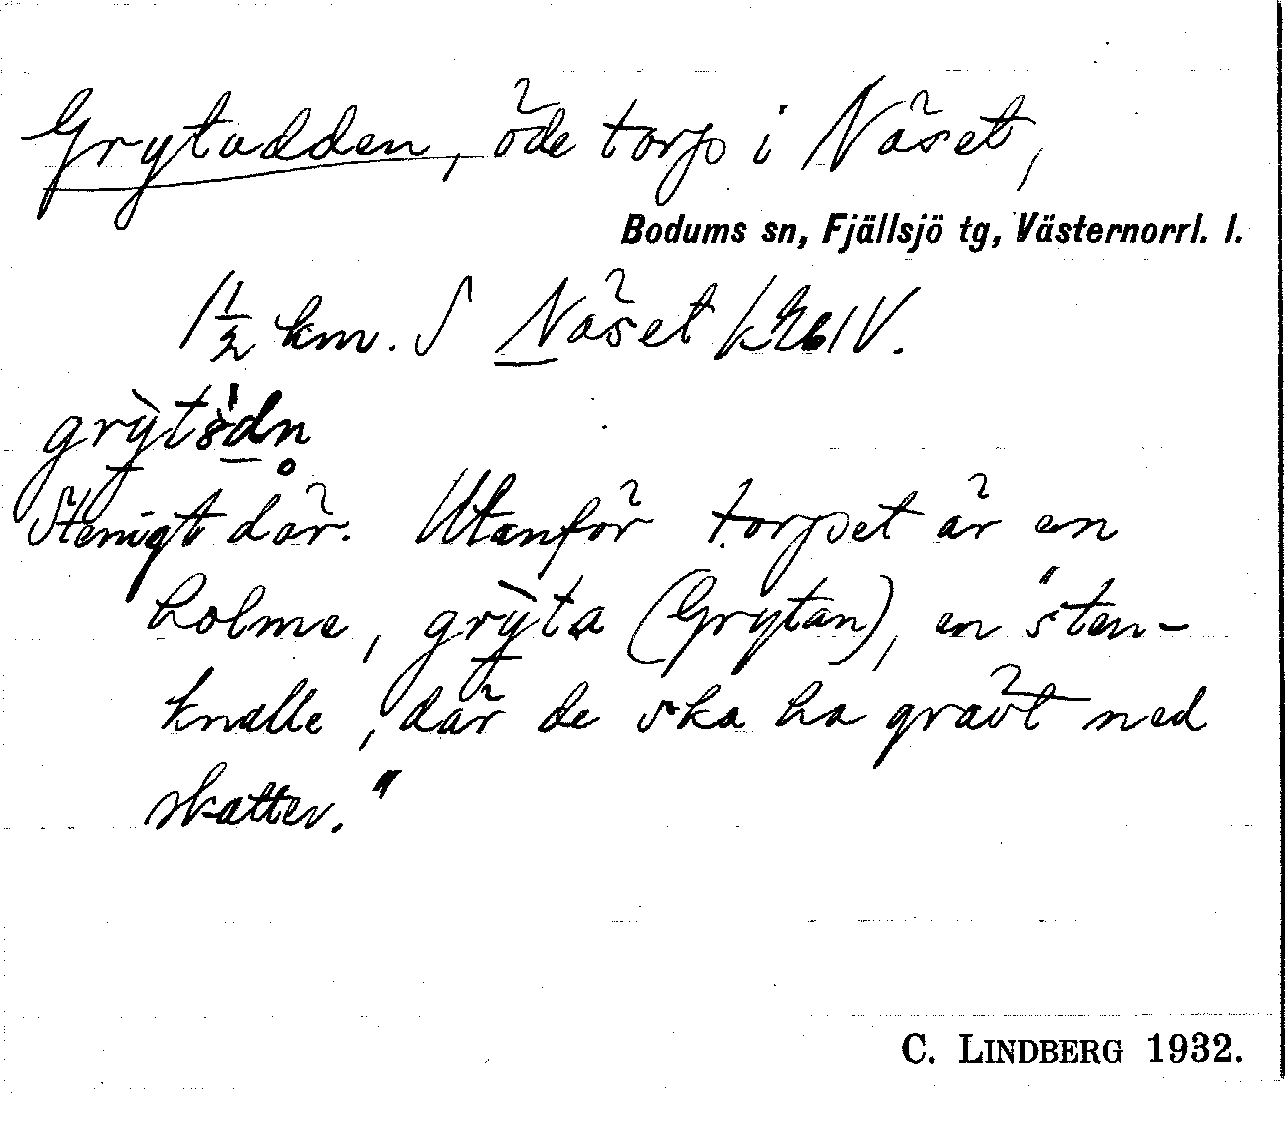 Grytudden, öde torp i Näset,
Bodums sn, Fjällsjö tg, Västernorrl. l.
1½ km. S Näset
Stenigt där. Utanför torpet är en
holme, grỳta (Grytan), en "sten-
knalle, där de ska ha grävt ned
skatter."
C. LINDBERG 1932.